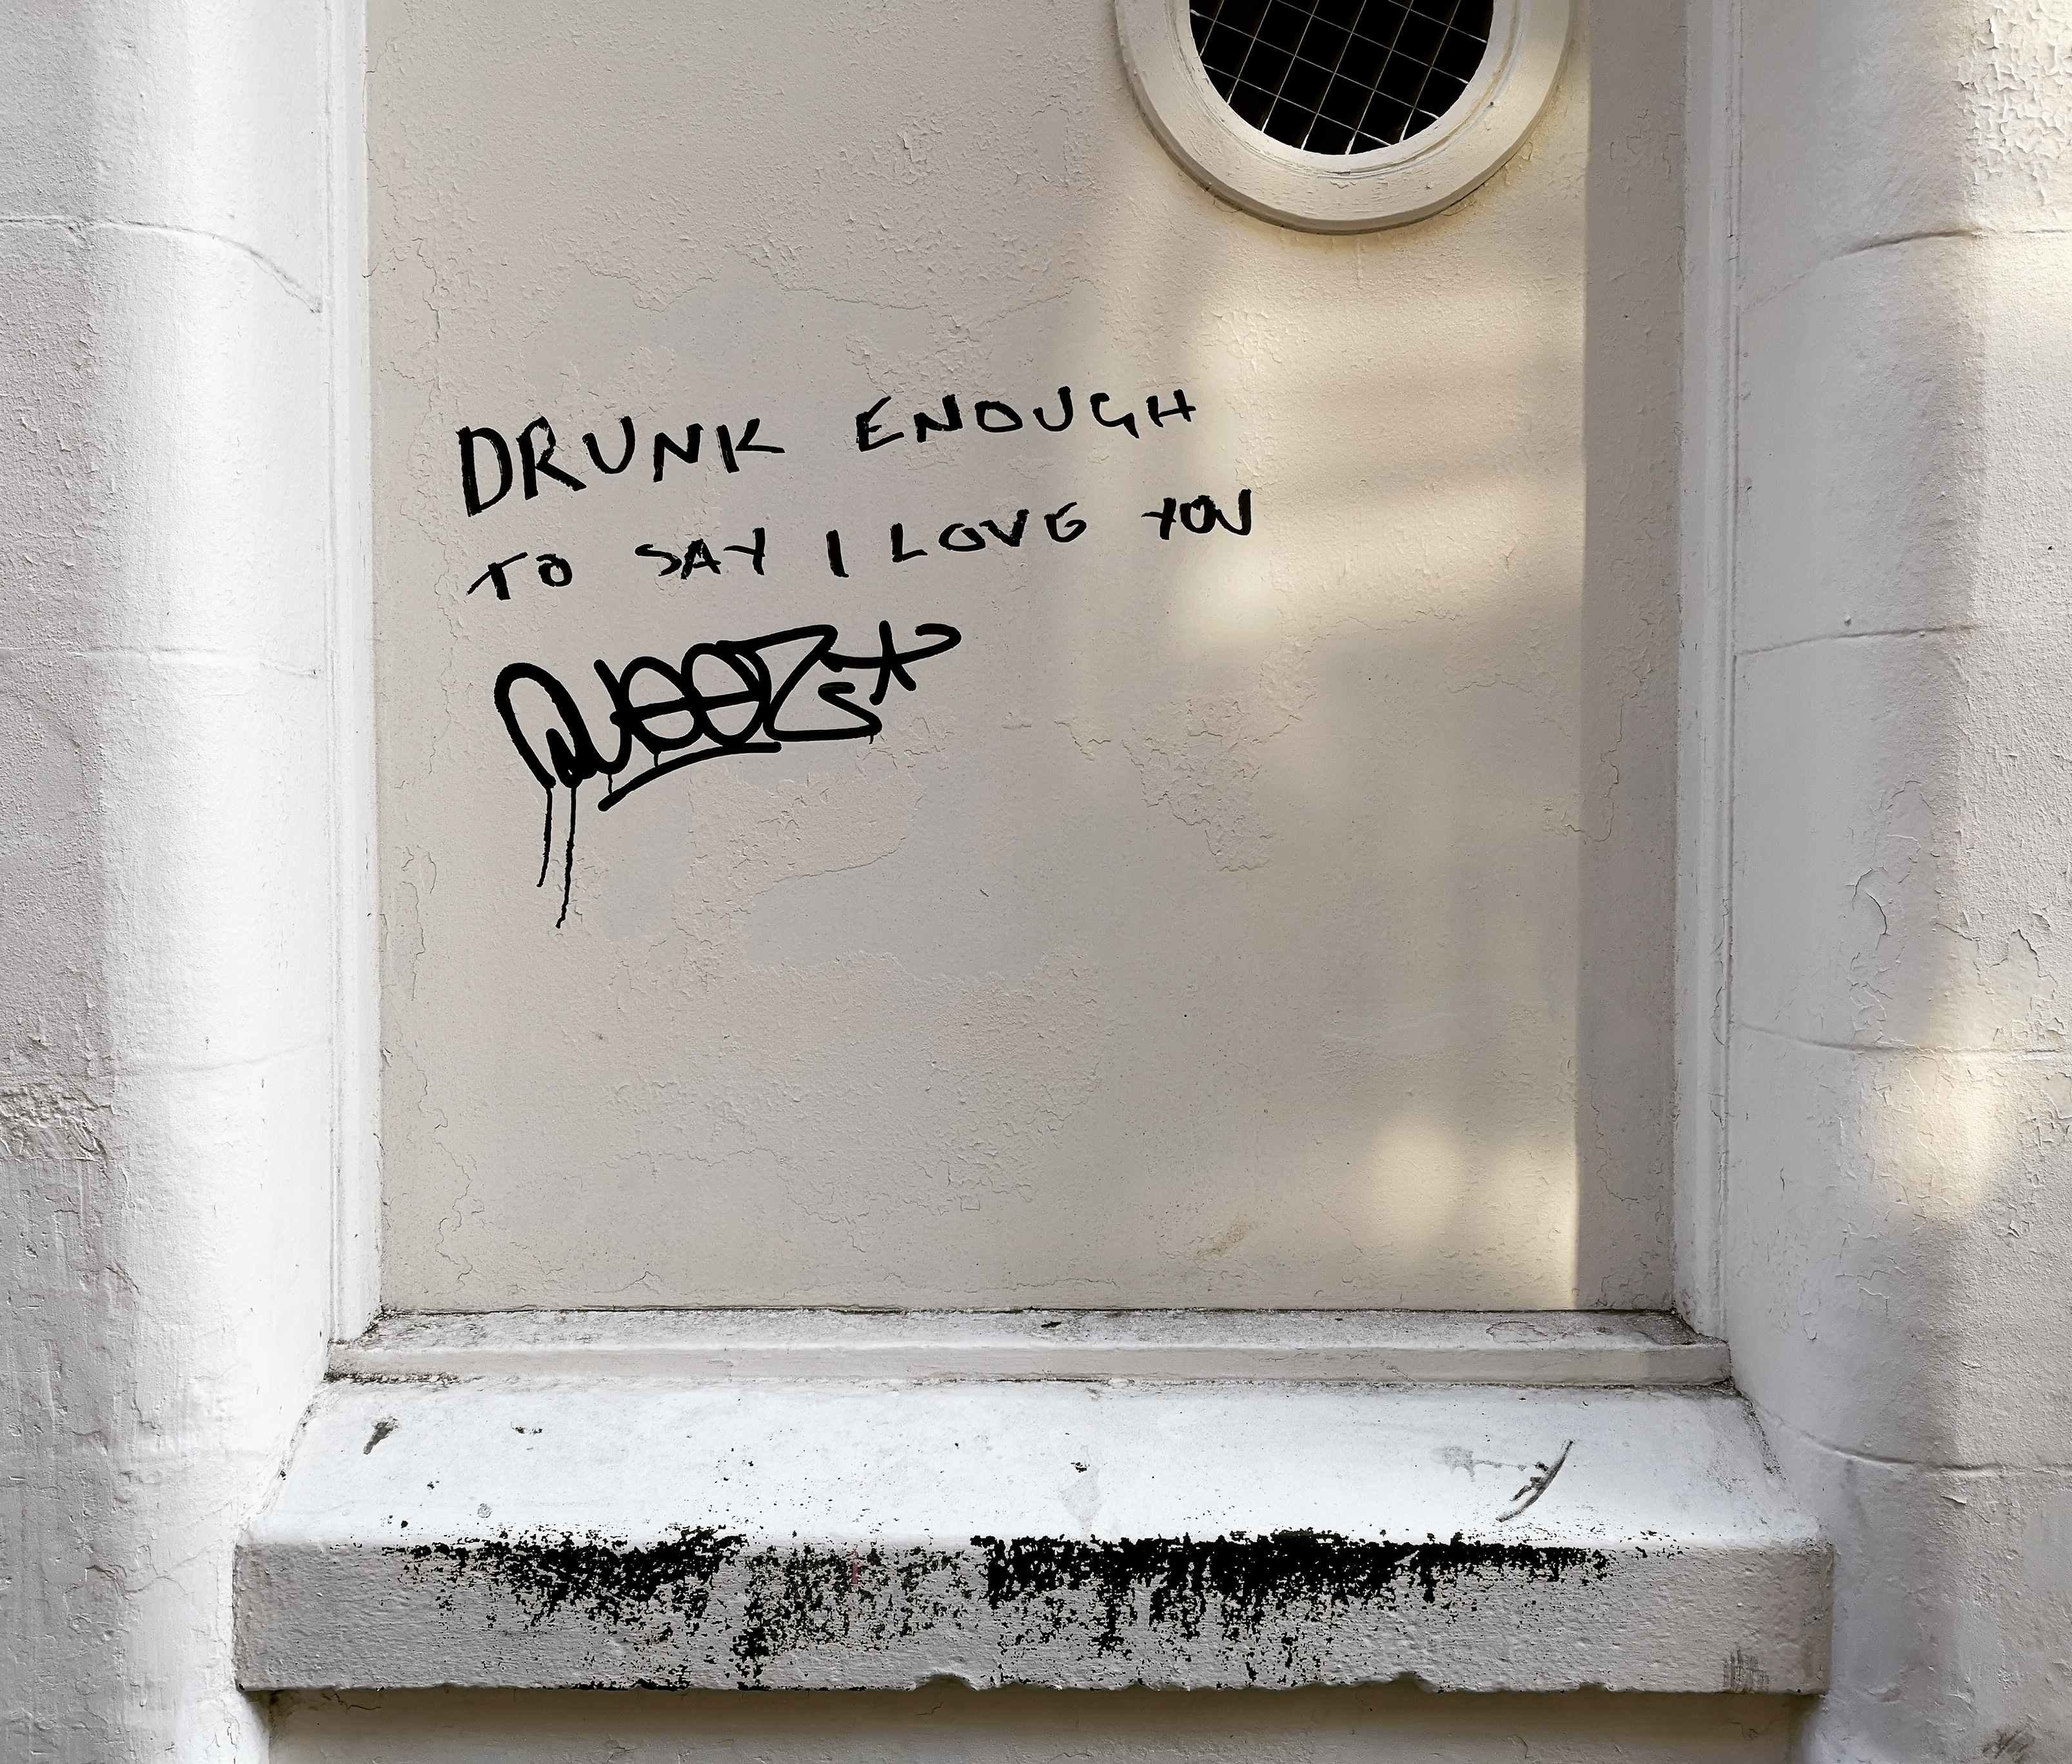 DRUNK ENOUGH
TO SAY I LOVE YOU